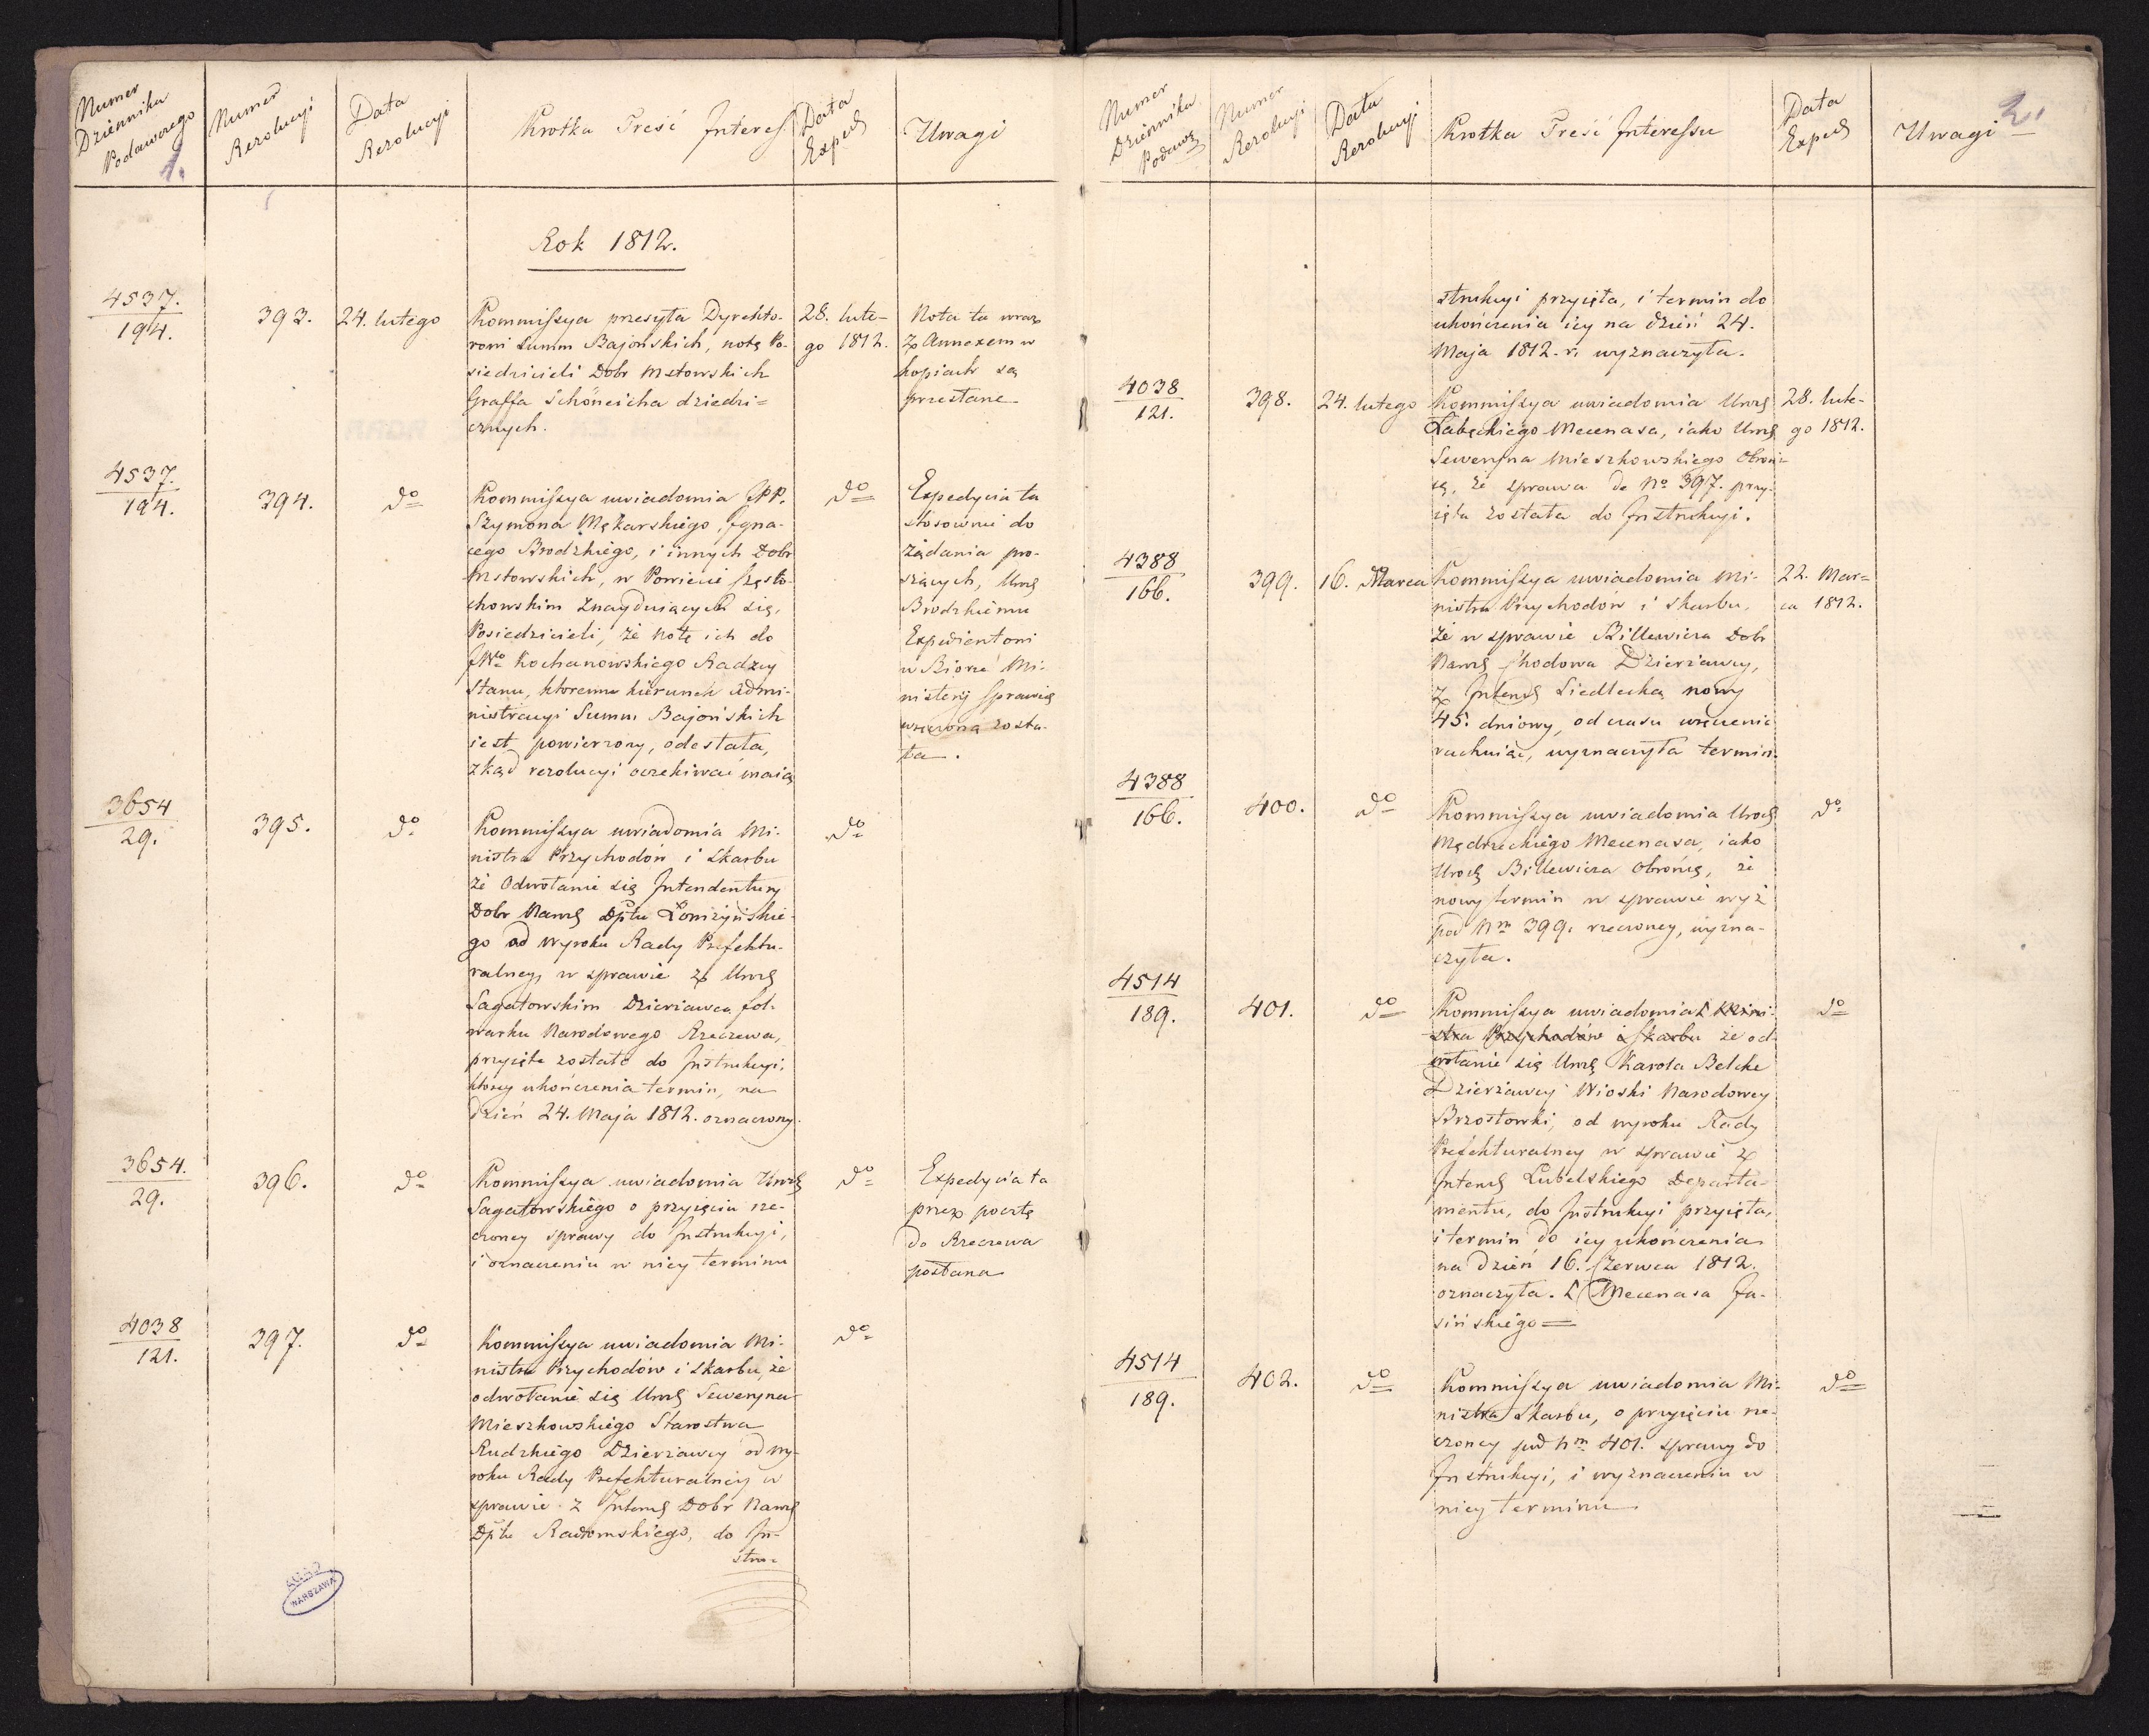 Numer
Dziennika
Podawczego
1.
Numer
Rezolucyi
Data
Rezolucyi
Krotka Treść Interess
Data
Exped
Uwagi
Rok 1812.
4537.
194.
393.
24. lutego
Kommissya przesyła Dyrekto-
rowi Summ Bajońskich, notę Po-
siedzicieli Dobr Mstowskich
Graffa Schöneicha dziedzi=
cznych.
28. lute-
go 1812.
Nota ta wraz
z Annexem w
kopiach są
przesłane
4537.
194.
394.
do
Kommissya uwiadomia JPP.
Szymona Mękarskiego, Igna-
cego Brodzkiego, i innych Dobr
Mstowskich, w Powiecie Często-
chowskim Znayduiących się,
Posiedzicieli, że notę ich do
JWo Kochanowskiego Radzcy
Stanu, ktoremu kierunek Admi-
nistracyi Summ Bajońskich
iest powierzony, odesłała,
zkąd rezolucyi oczekiwać maią
do
Expedycia ta
stosownie do
żądania pro-
szących, Urog
Brodzkiemu
Expedientowi
w Biorze Mi-
nisteryi Sprawie
wręczoną zosta-
ła.
3654
29.
395.
do
Kommissya uwiadomia Mi-
nistra Przychodów i Skarbu
że Odwołanie się Intendentury
Dobr Narog Dptu Łomżyńskie-
go od Wyroku Rady Prefektu-
ralney, w sprawie z Urog
Sagatowskim Dzierżawcą fol-
warku Narodowego Rzeczewa,
przyięte zostało do Instrukcyi,
ktorey ukończenia termin, na
dzień 24. Maja 1812. oznaczony.
do
3654.
29.
396.
do
Kommissya uwiadomia Urog
Sagatowskiego o przyięciu rze-
czoney sprawy do Instrukcyi,
i oznaczeniu w niey terminu
do
Expedycia ta
przez pocztę
do Rzeczewa
posłana
4038
121.
397.
do
Kommissya uwiadomia Mi-
nistra Przychodów i Skarbu, że
odwołanie się Urog Seweryna
Mieszkowskiego Starostwa
Rudzkiego Dzierżawcy od wy-
roku Rady Prefekturalney w
sprawie z Inteng Dobr Narog
Dptu Radomskiego, do In-
stru-
do
AGAD
WARSZAWA
Numer
Dziennika
Podawcz
Numer
Rezolucyi
Data
Rezolucyi
Krotka Treść Interessu
Data
Exped
Uwagi
2.
strukcyi przyięła, i termin do
ukończenia iey na dzień 24.
Maja 1812. r. wyznaczyła.
4038
121.
398.
24. lutego
Kommissya uwiadomia Urog
Łabęckiego Mecenasa, iako Urog
Seweryna Mieszkowskiego Obroń-
cę, że sprawa do No 397. przy-
ięta została do Instrukcyi.
28. lute-
go 1812.
4388
166.
399.
16. Marca
Kommissya uwiadomia Mi-
nistra Przychodów i Skarbu,
że w sprawie Billewicza Dobr
Narog Chodowa Dzierżawcy,
z Inteng Siedlecką nowy
45. dniowy, od czasu wręczenia
rachuiąc, wyznaczyła termin.
22. Mar=
ca 1812.
4388
166.
400.
do
Kommissya uwiadomia Urog
Mędrzeckiego Mecenasa, iako
Urog Billewicza Obrońcę, że
nowy termin w sprawie wyż
pod Nm 399. rzeczoney, wyzna-
czyła.
do
4514
189.
401.
do
Kommissya uwiadomia Mini-
stra Przychodów i Skarbu że od-
wołanie się Urog Karola Belcke
Dzierżawcy Wioski Narodowey
Brzostowki, od wyroku Rady
Prefekturalney w sprawie z
Inteng Lubelskiego Departa-
mentu, do Instrukcyi przyięła,
i termin do iey ukończenia
na dzień 16. Czerwca 1812.
oznaczyła. Mecenasa Ja-
sińskiego
do
4514
189.
402.
do
Kommissya uwiadomia Mi-
nistra Skarbu, o przyięciu rze-
czoney pod Nm 401. sprawy do
Instrukcyi, i wyznaczeniu w
niey terminu
do